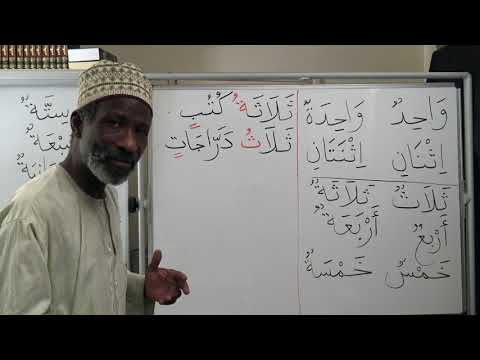 وَاحِدٌ وَاحِدَةٌ
اِثْنَانِ اِثْنَتَانِ
ثَلَاثٌ ثَلَاثَةٌ
أَرْبَعٌ أَرْبَعَةٌ
خَمْسٌ خَمْسَةٌ
ثَلَاثَةُ كُتُبٍ
ثَلَاثُ دَرَّاجَاتٍ
سِتَّةٌ